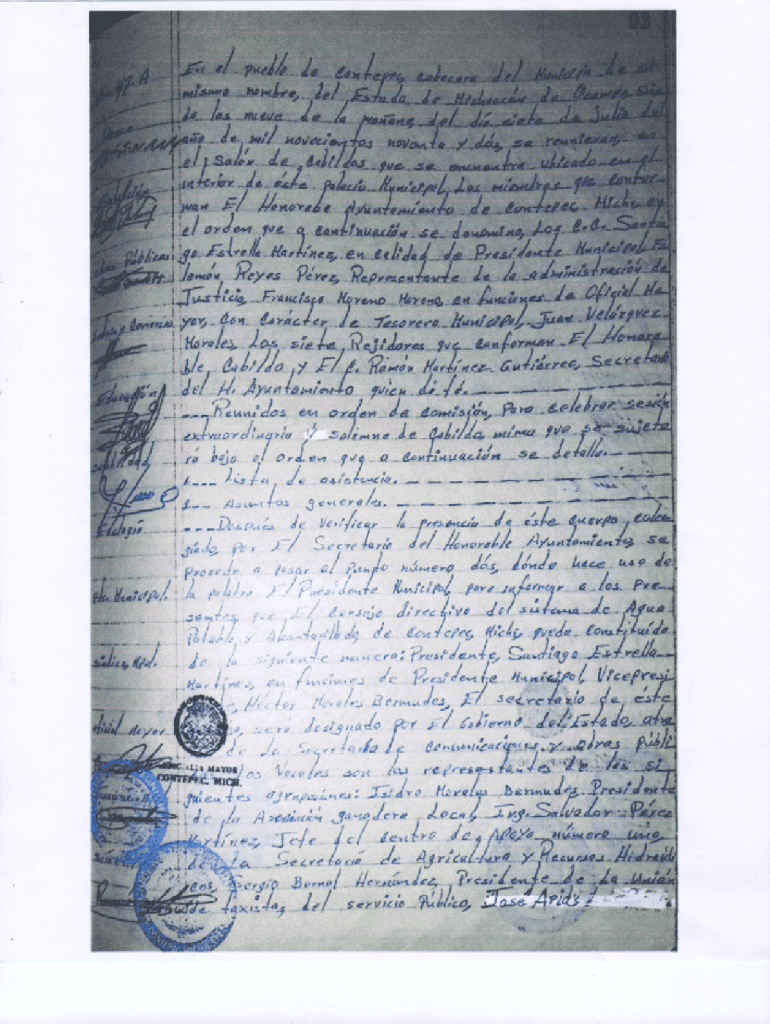 92
En el pueblo de Contepec, cabecera del Municipio de su
mismo nombre, del Estado de Michoacán de Ocampo, siendo
de las nueve de la mañana, del día siete de Julio del
año de mil novecientos noventa y dós, se reunieron, en
el Salón de Cabildos que se encuentra ubicado en el
interior de éste palacio Municipal, Los miembros que confor-
man El Honorable Ayuntamiento de Contepec, Mich. en
el orden que a continuación se denomina, Los C.C. Santia
go Estrella Martínez, en calidad de Presidente Municipal,
lemón Reyes Pérez, Representante de la administración de
Justicia, Francisco Moreno Moreno, en funciones de Oficial Ma
yor, Con Carácter de Tesorero Municipal, Juan Velázquez
Morales, Los siete Rejidores que conforman El Honora
ble, Cabildo y El C. Ramón Martínez Gutiérrez, Secretario
del H. Ayuntamiento quien dá fé.
Públicas
Salud y Comercio
Educación
--- Reunidos en orden de comisión, para celebrar sesión
extraordinaria y solemne de Cabildo, misma que se sujeta
rá bajo el orden que a continuación se detalla.
1.-- Lista de asistencia.
2.-- Asuntos generales.
--- Después de verificar la presencia de éste cuerpo cole
giado, por El Secretario del Honorable Ayuntamiento, se
procede a pasar al punto número dós, dónde hace uso de
la palabra El Presidente Municipal, para informar a los Pre
sentes, que El Consejo directivo del sistema de Agua
Potable, y Alcantarillado de Contepec, Mich., queda constituído
de la siguiente manera: Presidente, Santiago Estrella
Martínez, en funciones de Presidente Municipal, Vicepresi
Héctor Morales Bermudes, El secretario de éste
será designado por El Gobierno del Estado, atra
de la Secretaría de Comunicaciones y obras públi
Los Vocales son los representantes de las si
guientes agrupaciones: Isidro Morales Bermudes, Presidente
de la Asociación ganadera Local, Ing. Salvador Pérez
Martínez, Jefe del centro de Apoyo número uno,
de la Secretaría de Agricultura y Recursos Hidraúli
cos, Sergio Bernal Hernández, Presidente de La Unión
de taxista, del servicio Público, José
Ecología
Municipal.
Síndico, Mpal.
Oficial Mayor
OFICIALIA MAYOR
CONTEPEC, MICH.